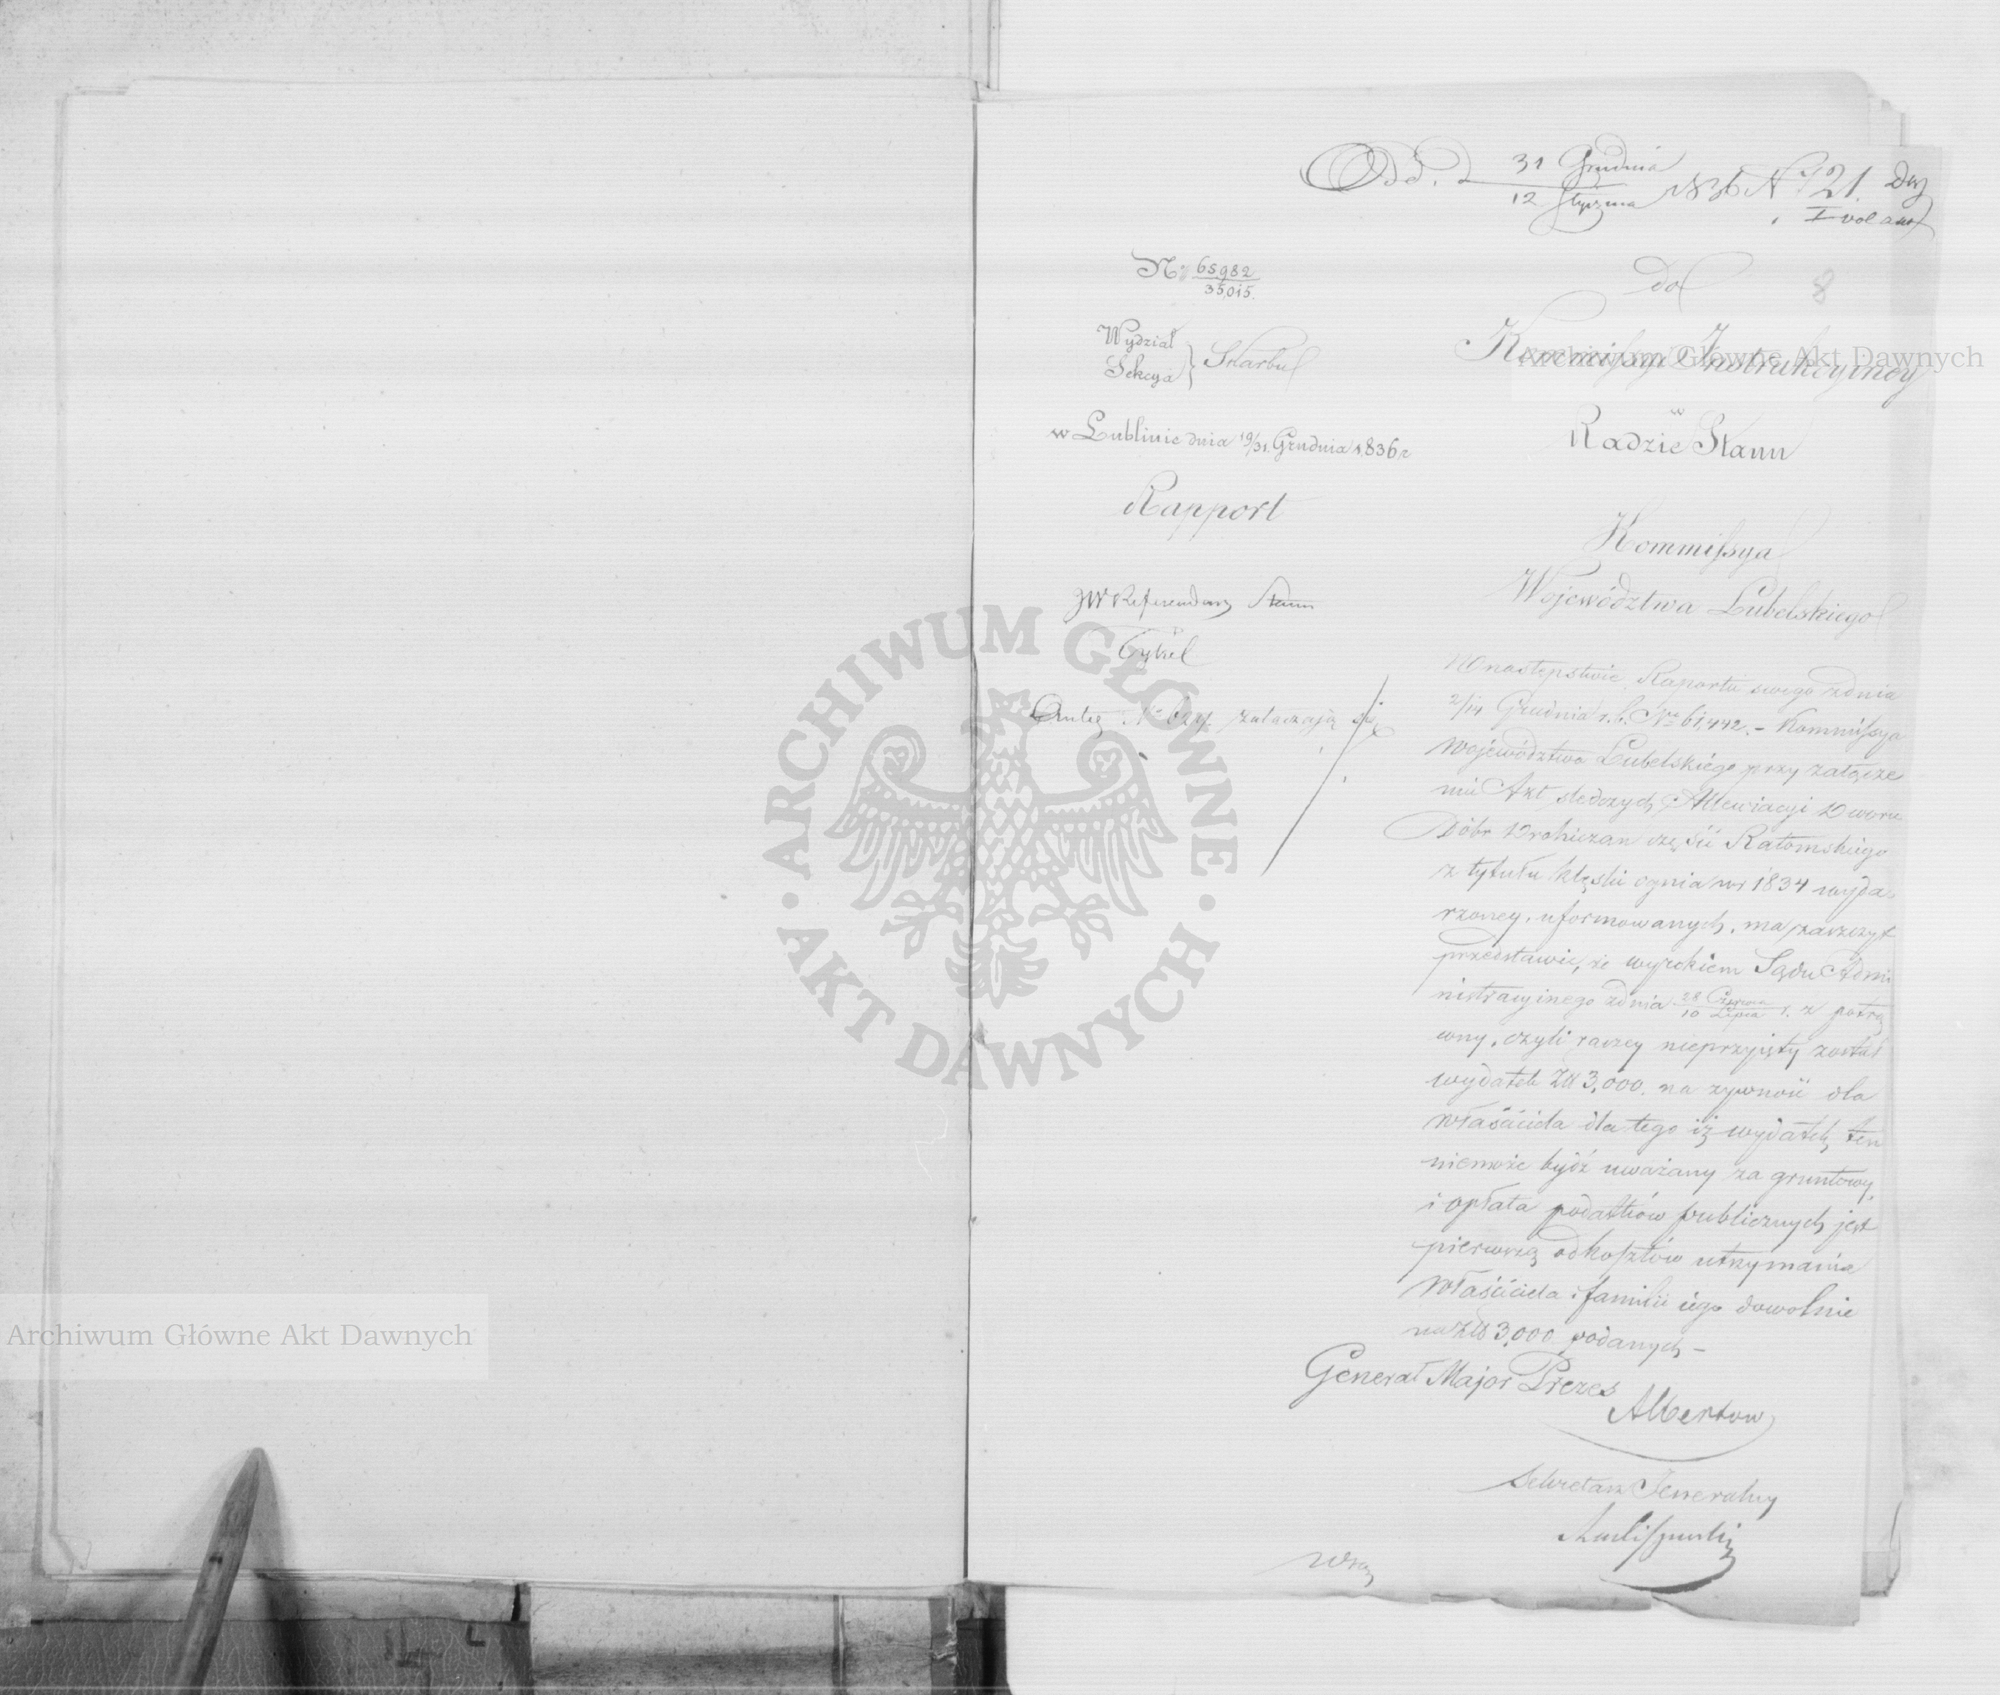 Odd. d. 31 Grudnia
12 Stycznia 1836 No 21.
8
No 65982
35,015.
Wydział
Sekcya } Skarbu
w Lublinie dnia 19/31. Grudnia 1836 r
Rapport
JW Referendarz Stanu
Tykel
załączają się
Do
Kommissyi Instrukcyjney
w
Radzie Stanu
Kommissya
Województwa Lubelskiego
W następstwie Raportu swego z dnia
2/14 Grudnia r. b. No 61,442. – Kommissya
Województwa Lubelskiego przy załącze
niu Akt śledczych Allewiacyi Dworu
Dóbr Drohiczan części Ratomskiego
z tytułu klęski ognia w r 1834 wyda-
rzoney, uformowanych, ma zaszczyt
przedstawić, że wyrokiem Sądu Admi
nistracyjnego z dnia 28 Czerwca
10 Lipca r. z potrą
cony, czyli raczey nieprzyjęty został
wydatek Zł 3,000. na żywność dla
właściciela dla tego iż wydatek ten
niemoże bydź uważany za gruntowy,
i opłata podatków publicznych jest
pierwszą od kosztów utrzymania
Właściciela i familii iego dowolnie
na Zł 3,000 podanych –
Generał Major Prezes
Albertow
Sekretarz Jeneralny
Archiwum Główne Akt Dawnych
Archiwum Główne Akt Dawnych
ARCHIWUM GŁÓWNE
AKT DAWNYCH